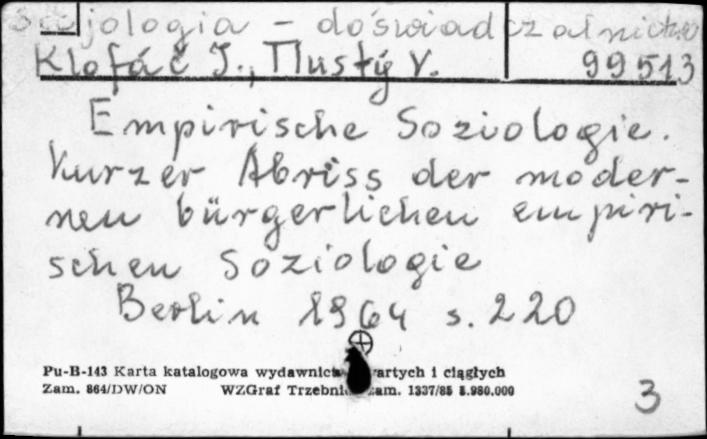 Socjologia - doświadczalnictwo
Klofáč J., Tlustý V.
99513
Empirische Soziologie.
Kurzer Abriss der moder-
nen bürgerlichen empiri-
schen Soziologie
Berlin 1964 s. 220
Pu-B-143 Karta katalogowa wydawnictw zwartych i ciągłych
Zam. 864/DW/ON WZGraf Trzebnica zam. 1337/85 5.980.000
3